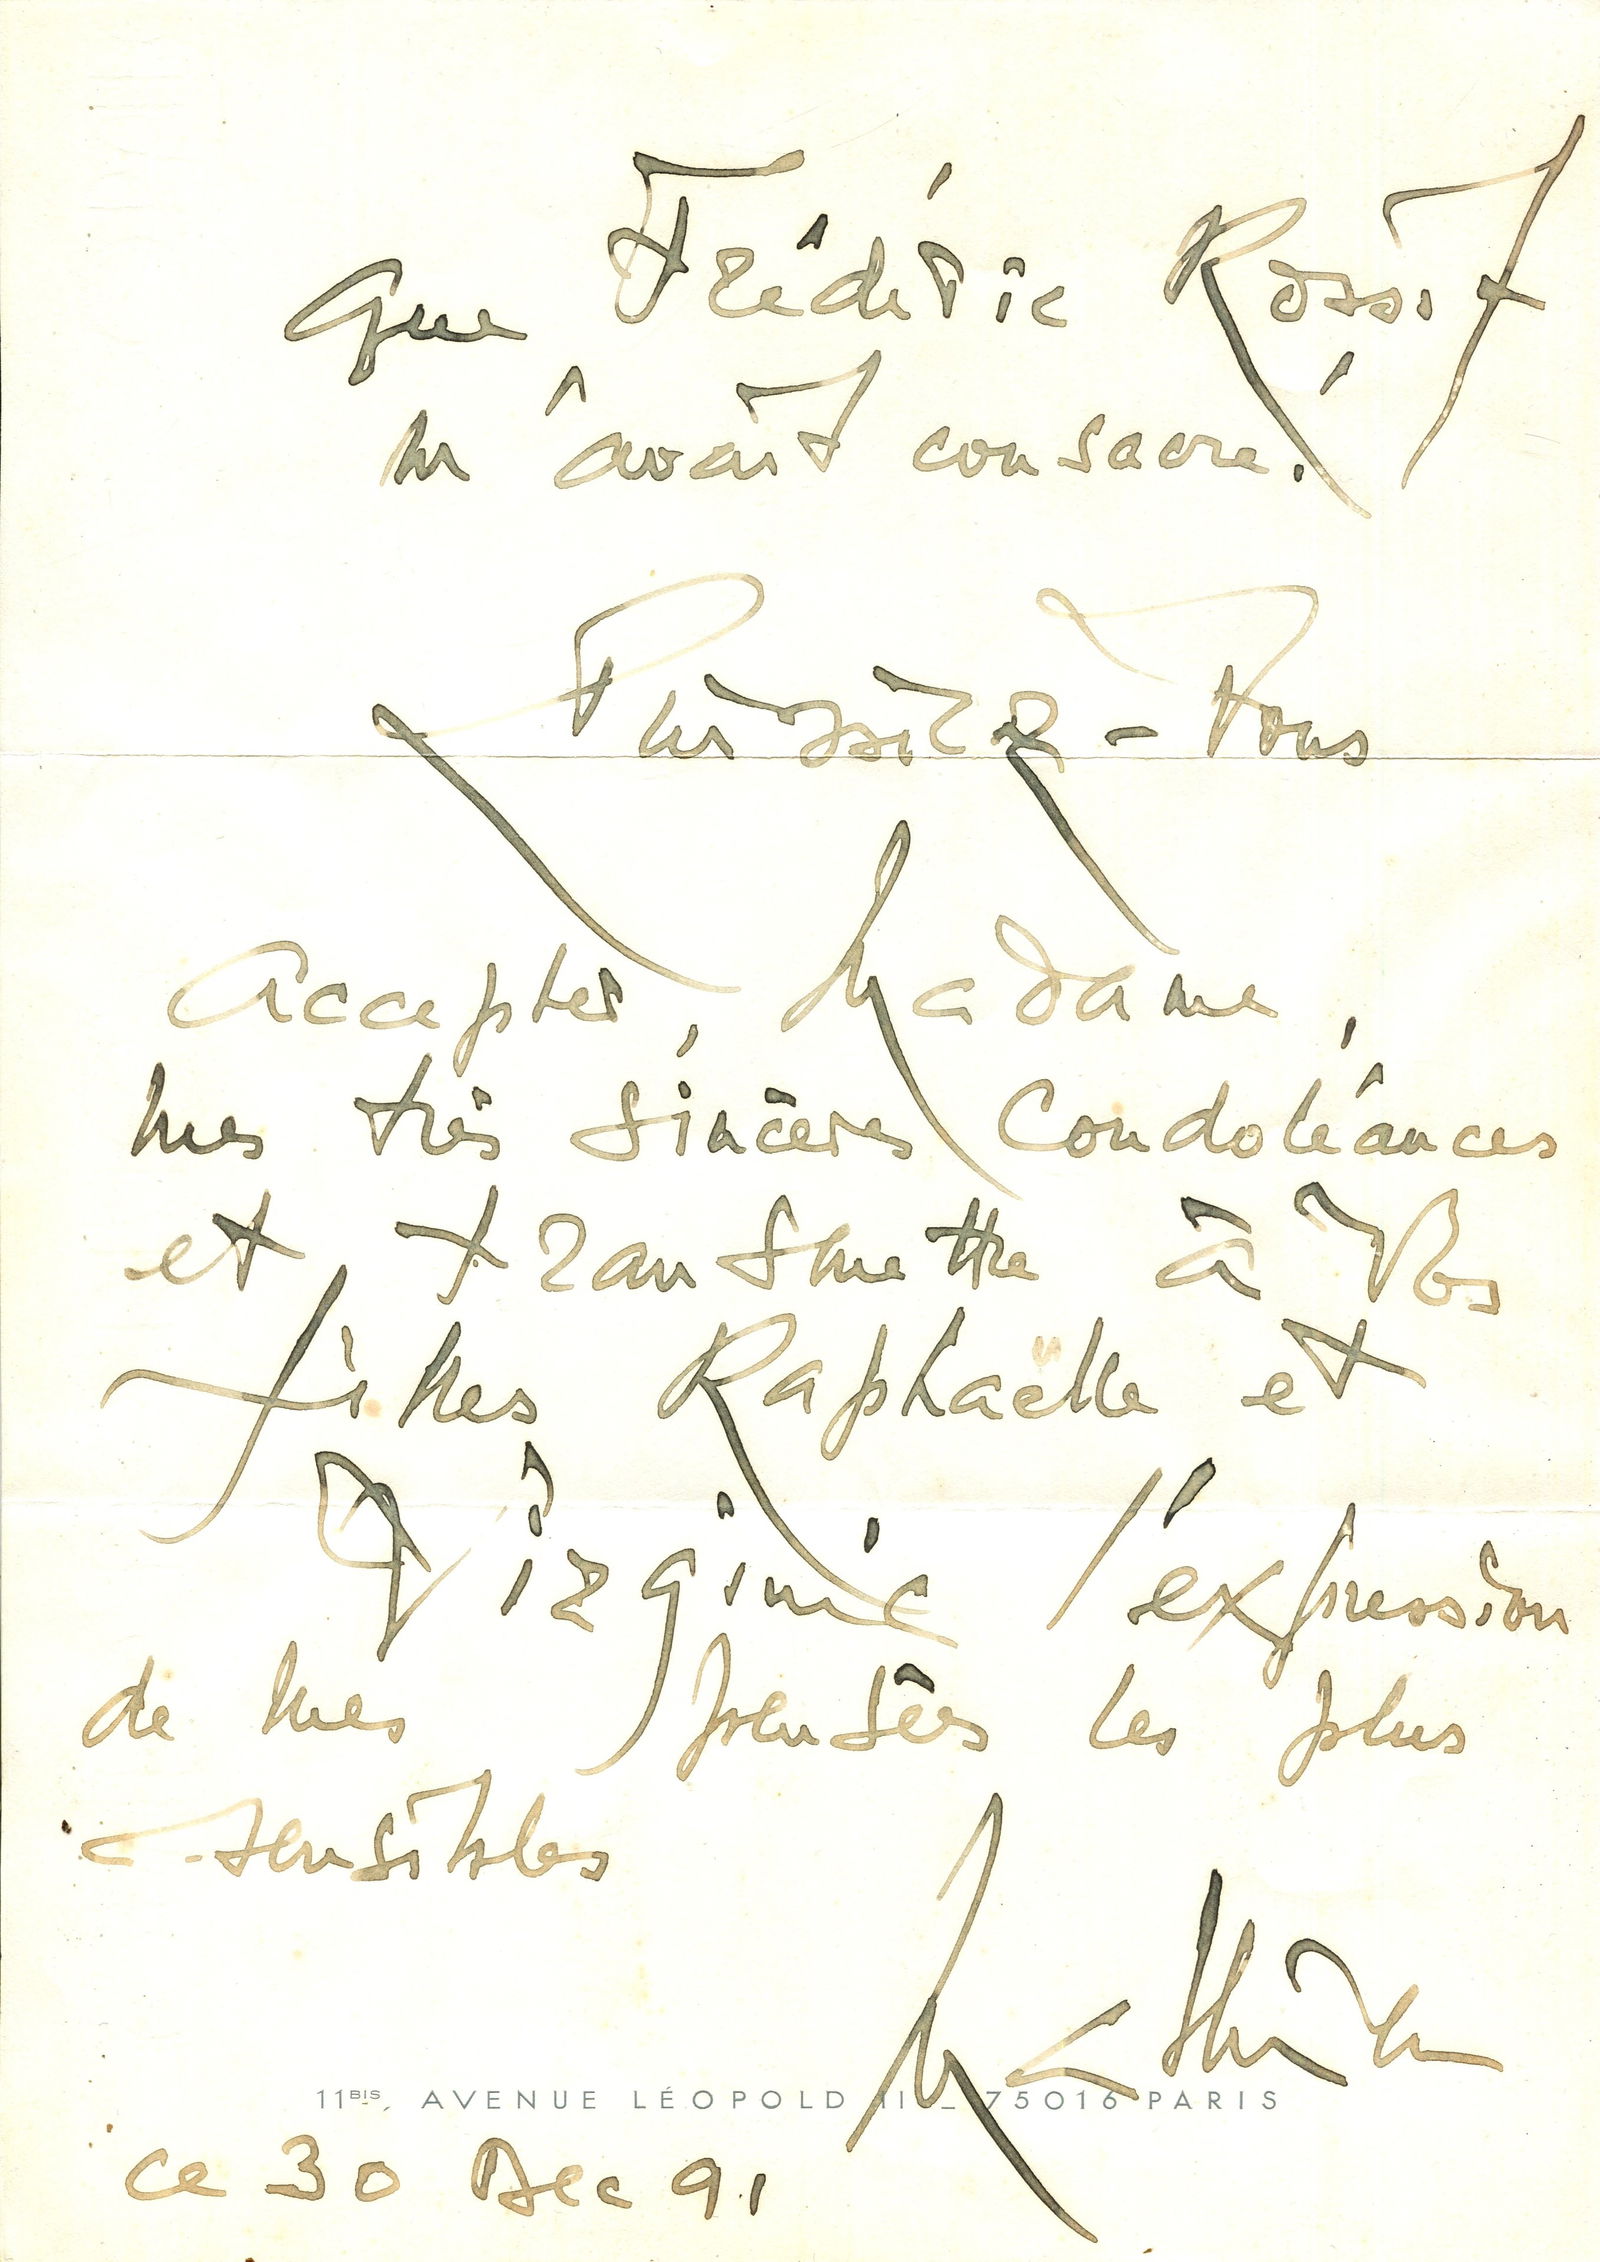 que Frédéric Rossif
m'avait consacré.
Puissiez-Vous
Accepter, Madame,
mes très sincères Condoléances
et transmettre à Vos
filles Raphaëlle et
Virginie l'expression
de mes pensées les plus
sensibles
Mathieu
11BIS, AVENUE LÉOPOLD II _ 75016 PARIS
ce 30 Dec 91